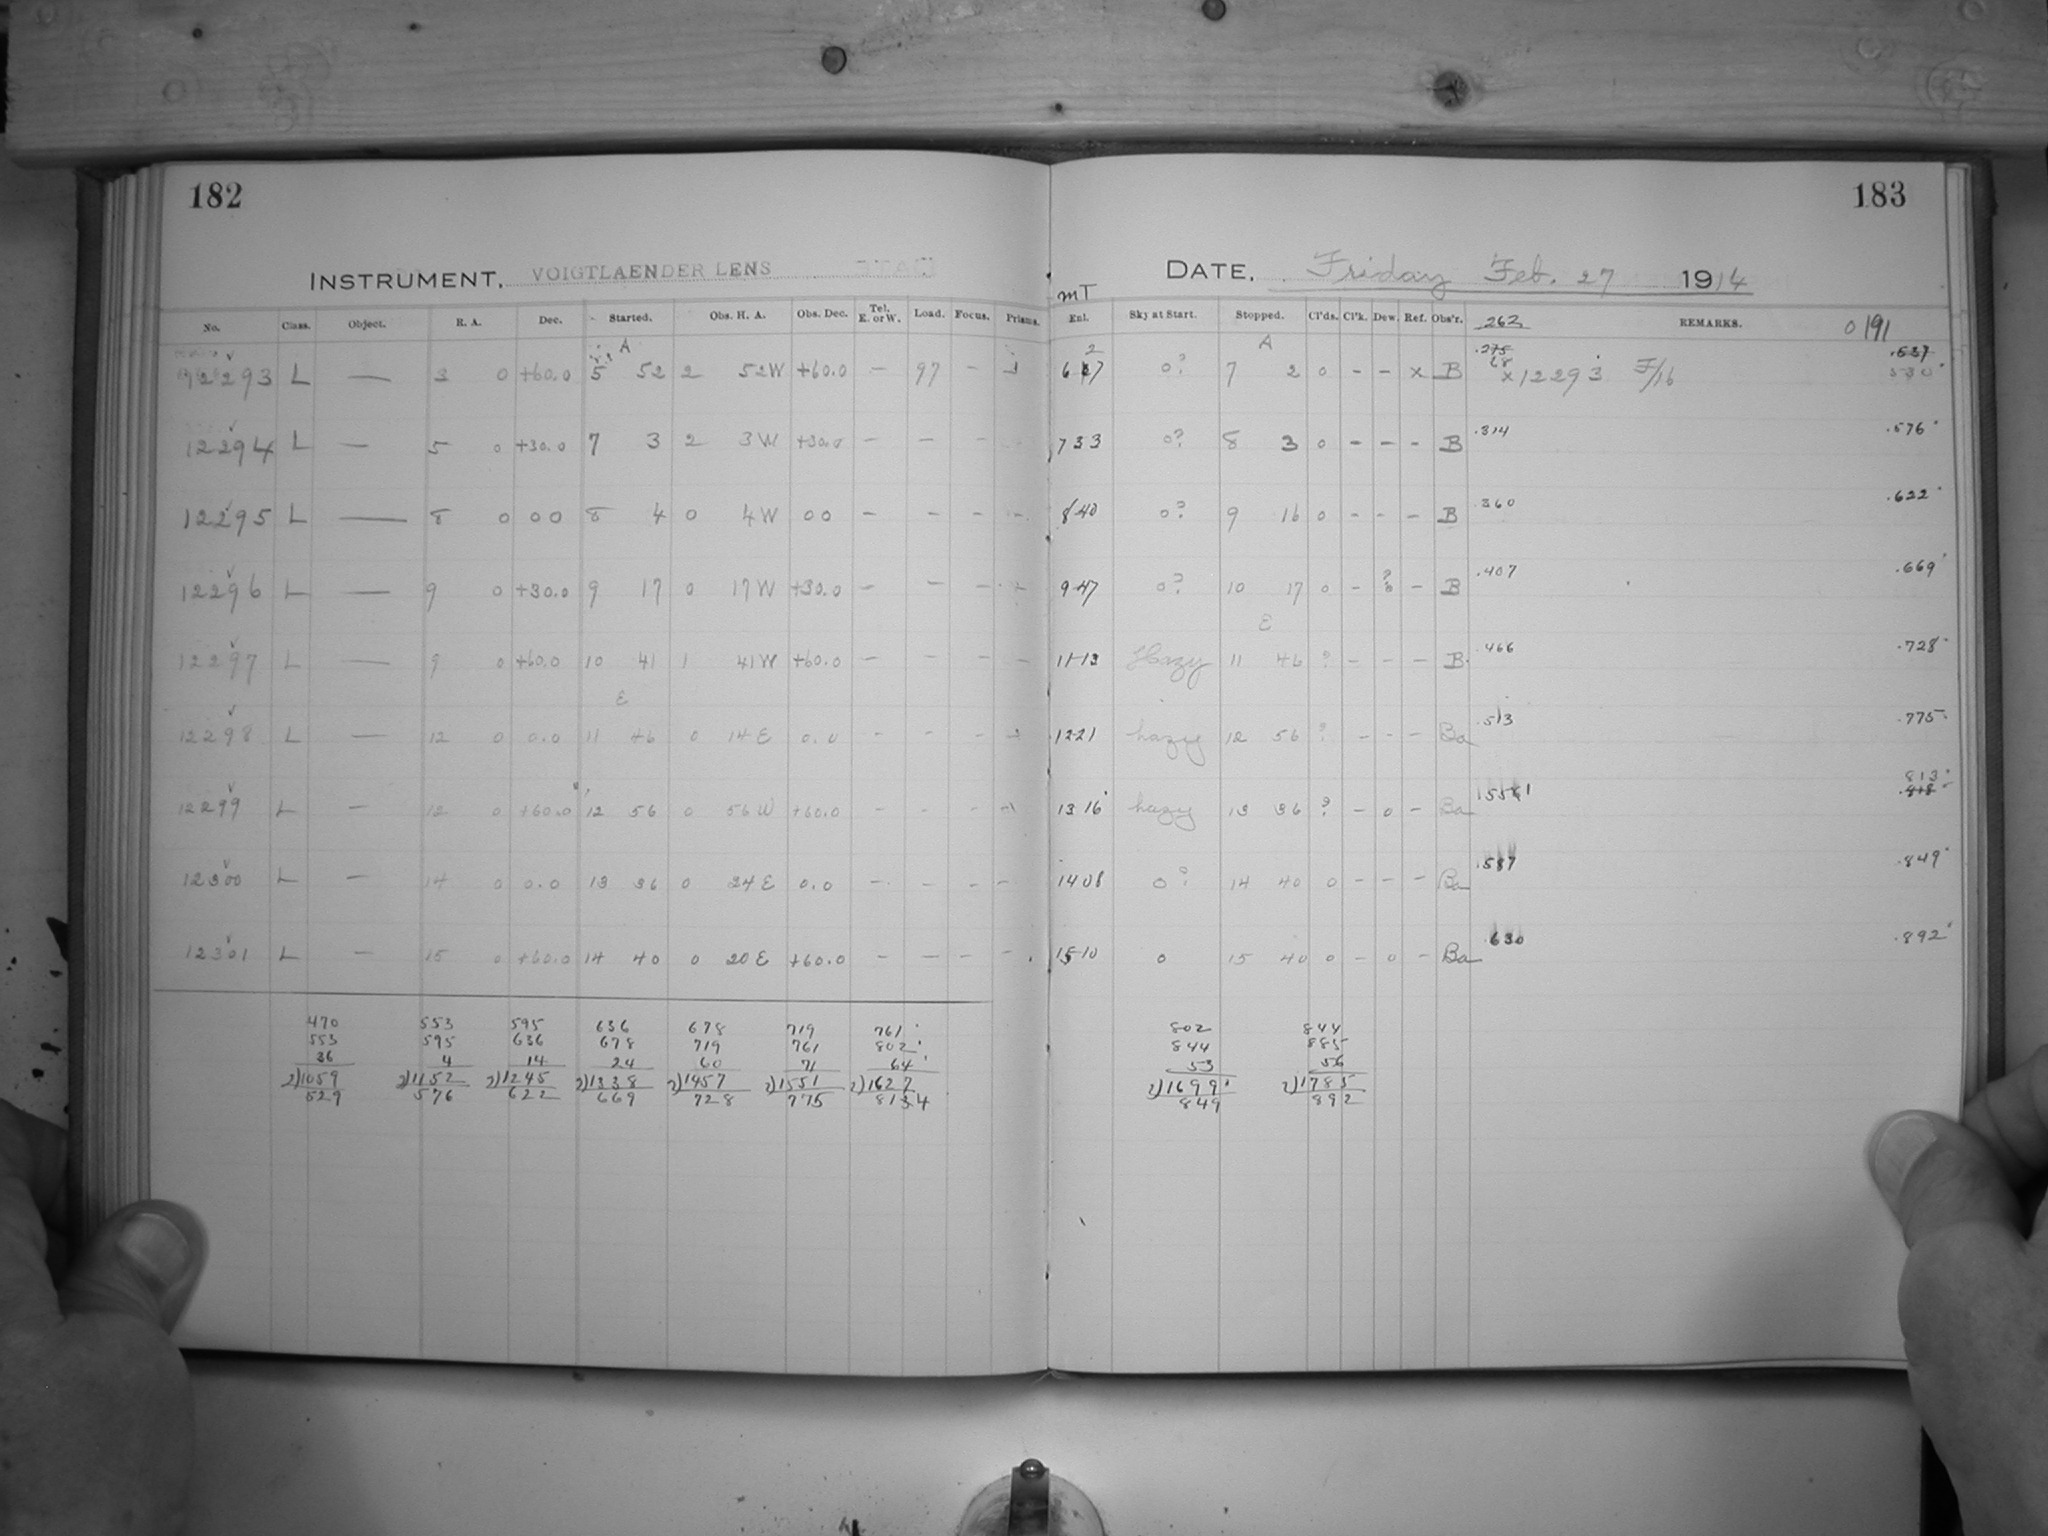 182
183
INSTRUMENT, VOIGTLAENDER LENS
DATE, Friday Feb. 27 1914
No. Class. Object. R. A. Dec. Started. Obs. H. A. Obs. Dec. Tel. E. or W. Load. Focus. Prisms.
mT
Enl. Sky at Start. Stopped. Cl'ds. Cl'k. Dew. Ref. Obs'r. 262 REMARKS. 0191
A 2 A .275 .537
12293 L — 3 0 +60.0 5 52 2 52W +60.0 — 97 - 6 27 0? 7 2 0 - - x B 68 x12293 F/16 530
12294 L — 5 0 +30.0 7 3 2 3W +30.0 — — - 7 33 0? 8 3 0 - - - B .314 .576
12295 L — 8 0 00 8 4 0 4W 00 — - - - 8 40 0? 9 16 0 - - - B .360 .622
12296 L — 9 0 +30.0 9 17 0 17W +30.0 — — - - 9 47 0? 10 17 0 - ? 0 - B .407 .669
E
12297 L — 9 0 +60.0 10 41 1 41W +60.0 — - - - 11-13 Hazy 11 46 ? - - - B .466 .728
E
12298 L — 12 0 0.0 11 46 0 14E 0.0 - - - 12 21 hazy 12 56 ? - - - Ba .513 .775
813
12299 L — 12 0 +60.0 12 56 0 56W +60.0 - - - 13 16 hazy 13 36 ? - 0 - Ba .818
12300 L — 14 0 0.0 13 36 0 24E 0.0 - - - - 14 08 0? 14 40 0 - - - Ba .587 .849
12301 L — 15 0 +60.0 14 40 0 20E +60.0 - - - - 15 10 0 15 40 0 - 0 - Ba 630 .892
470 553 595 636 678 719 761 802 844
553 595 636 678 719 761 802 844 885
36 4 14 24 60 71 64 53 56
2)1059 2)1152 2)1245 2)1338 2)1457 2)1551 2)1627 2)1699 2)1785
529 576 622 669 728 775 813.4 849 892